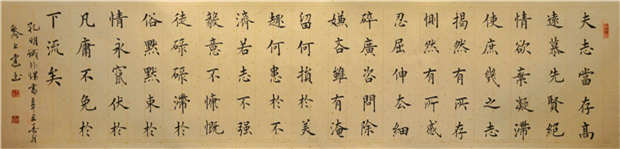 夫志當存高
遠慕先賢絕
情欲棄凝滯
使庶幾之志
揭然有所存
惻然有所感
忍屈伸去細
碎廣咨問除
嫌吝雖有淹
留何損於美
趣何患於不
濟若志不强
毅意不慷慨
徒碌碌滯於
俗默默束於
情永竄伏於
凡庸不免於
下流矣
孔明誡外甥書辛丑